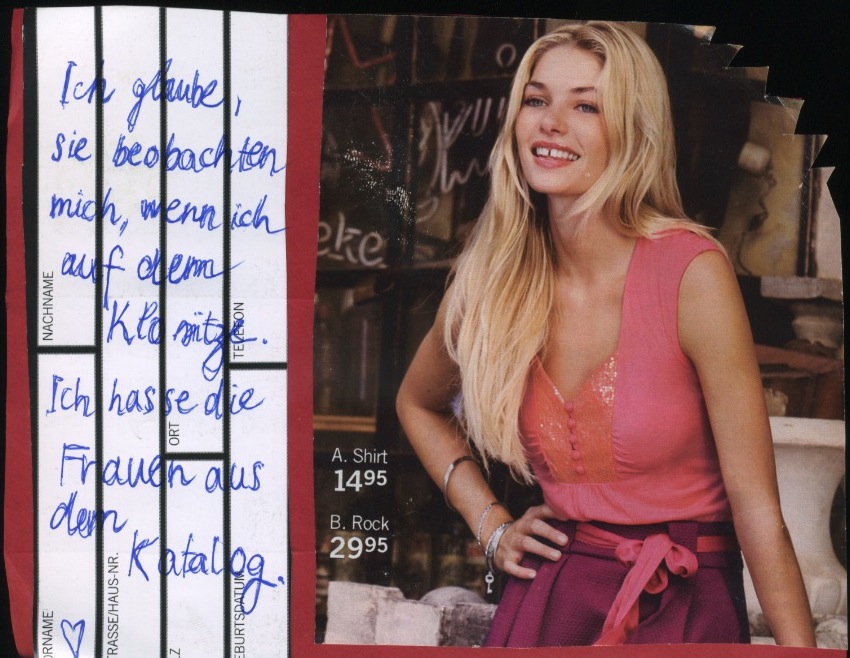 Ich glaube,
sie beobachten
mich, wenn ich
auf dem
Klo sitze.
Ich hasse die
Frauen aus
dem
Katalog.
NACHNAME
TELEFON
ORT
ORNAME
TRASSE/HAUS-NR.
LZ
EBURTSDATUM
eke
A. Shirt
14 95
B. Rock
29 95